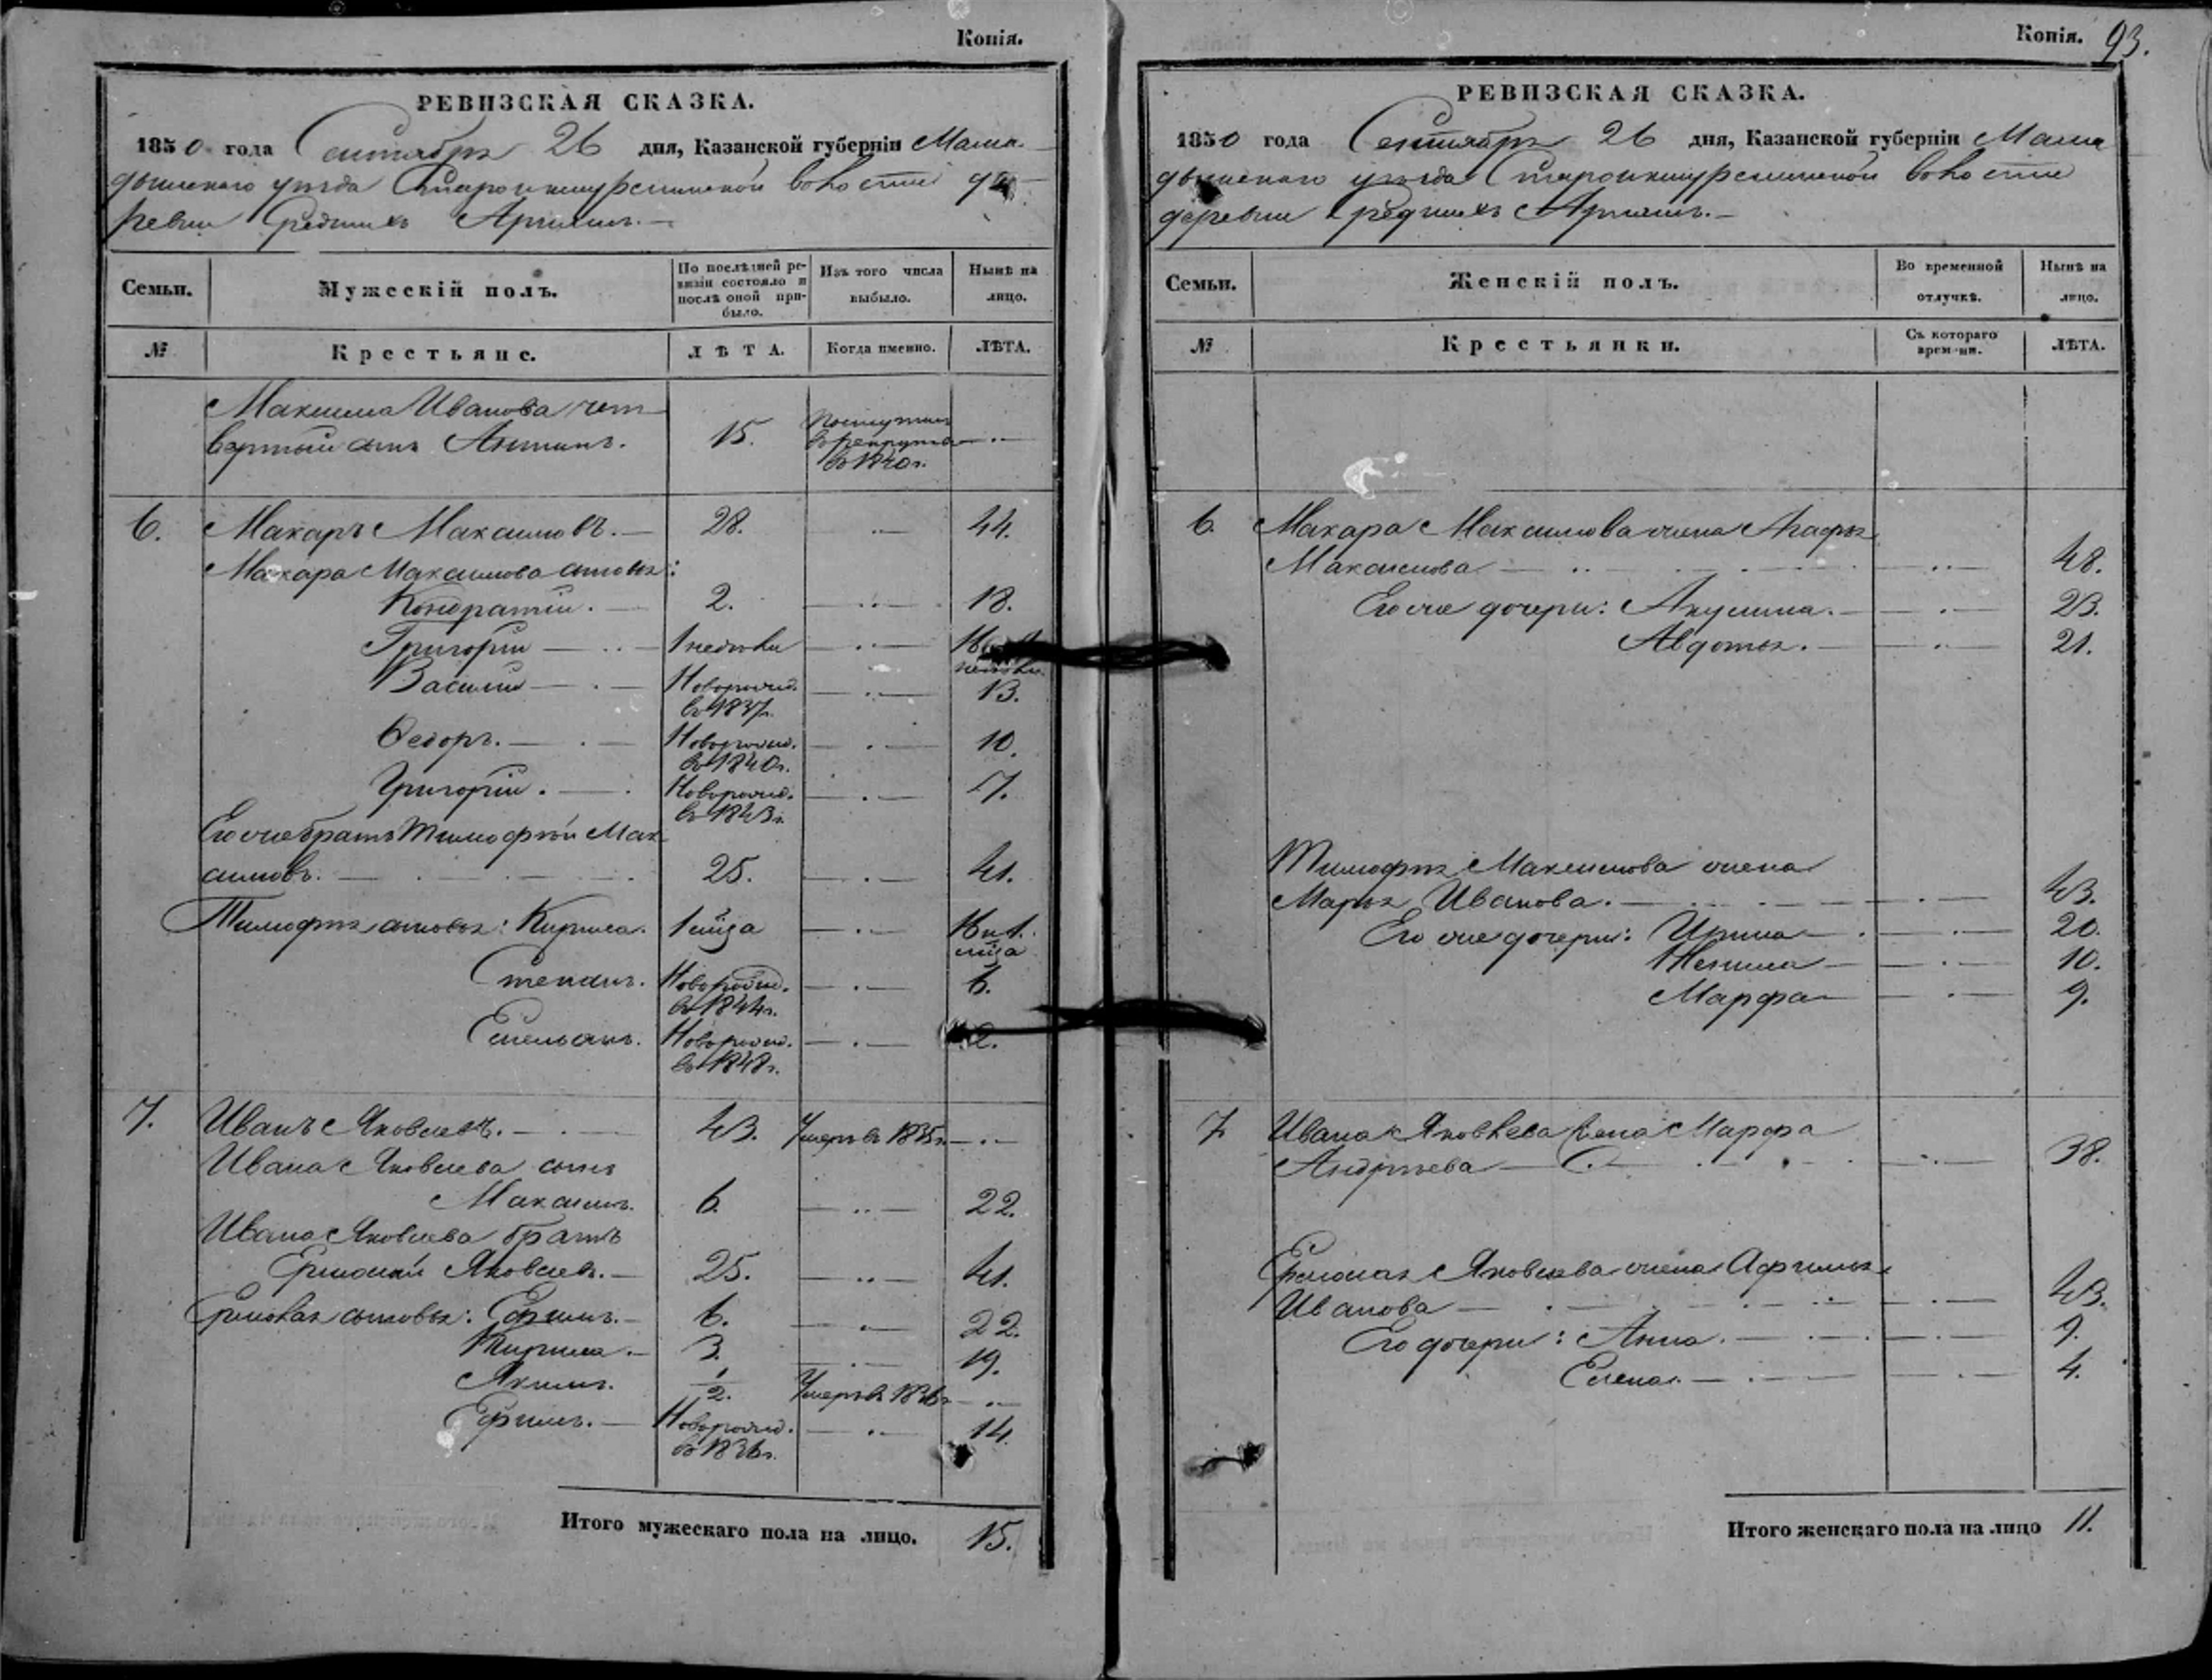 Копія.
РЕВИЗСКАЯ СКАЗКА.
1850 года Сентября 26 дня, Казанской губерніи Мама-
дышскаго уѣзда волости де-
ревни Среднихъ
Семьи. Мужескій полъ. По послѣдней ре- визіи состояло и послѣ оной при- было. Изъ того числа выбыло. Нынѣ на лицо.
№ Крестьяне. ЛѢТА. Когда именно. ЛѢТА.
Максима Иванова чет-
вертый сынъ Антипъ. 15. Поступилъ
въ рекруты
въ 1840 г.
6. Макаръ Максимовъ. 28. 44.
Макара Максимова сыновья:
Кондратій. 2. 18.
Григорій 1 недѣли 16
недѣли
Василій Новорожд. 13.
въ 1837 г.
Ѳедоръ. Новорожд. 10.
въ 1840 г.
Григорій. Новорожд. 7.
въ 1843 г.
Его же братъ Тимофѣй Мак-
симовъ. 25. 41.
Тимофѣя сыновья: Кирила. 1 м̃ца 16 и 1.
м̃ца
Степанъ. Новорожд. 6.
въ 1844 г.
Емельянъ. Новорожд. 2.
въ 1848 г.
7. Иванъ Яковлевъ. 43. Умеръ въ 1835 г.
Ивана Яковлева сынъ
Максимъ. 6. 22.
Ивана Яковлева братъ
Ермолай Яковлевъ. 25. 41.
Ермолая сыновья: Ефимъ. 6. 22.
Кирила. 3. 19.
Якимъ. 1/2. Умеръ въ 1836 г.
Ефимъ. Новорожд. 14.
въ 1836 г.
Итого мужескаго пола на лицо. 15.
Копія. 93.
РЕВИЗСКАЯ СКАЗКА.
1850 года Сентября 26 дня, Казанской губерніи Мама-
дышскаго уѣзда волости
деревни Среднихъ
Семьи. Женскій полъ. Во временной отлучкѣ. Нынѣ на лицо.
№ Крестьянки. Съ котораго времени. ЛѢТА.
6. Макара Максимова жена Агафья
Максимова 48.
Его же дочери: Акулина. 23.
Авдотья. 21.
Тимофѣя Максимова жена
Марья Иванова. 43.
Его же дочери: Ирина 20.
10.
Марфа 9.
7. Ивана Яковлева жена Марфа
Андрѣева 38.
Ермолая Яковлева жена Афимья
Иванова 43.
Его дочери: Анна. 9.
Елена. 4.
Итого женскаго пола на лицо 11.